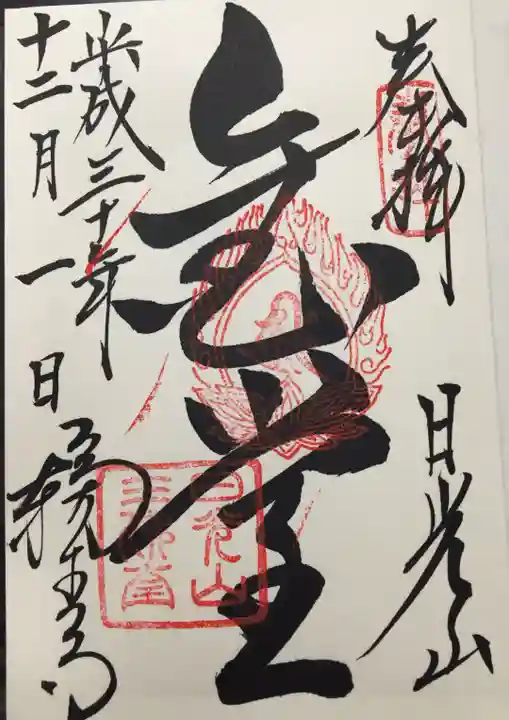 奉拝
日光山
金堂
日光山
三佛堂
平成三十年
十二月一日
輪王寺